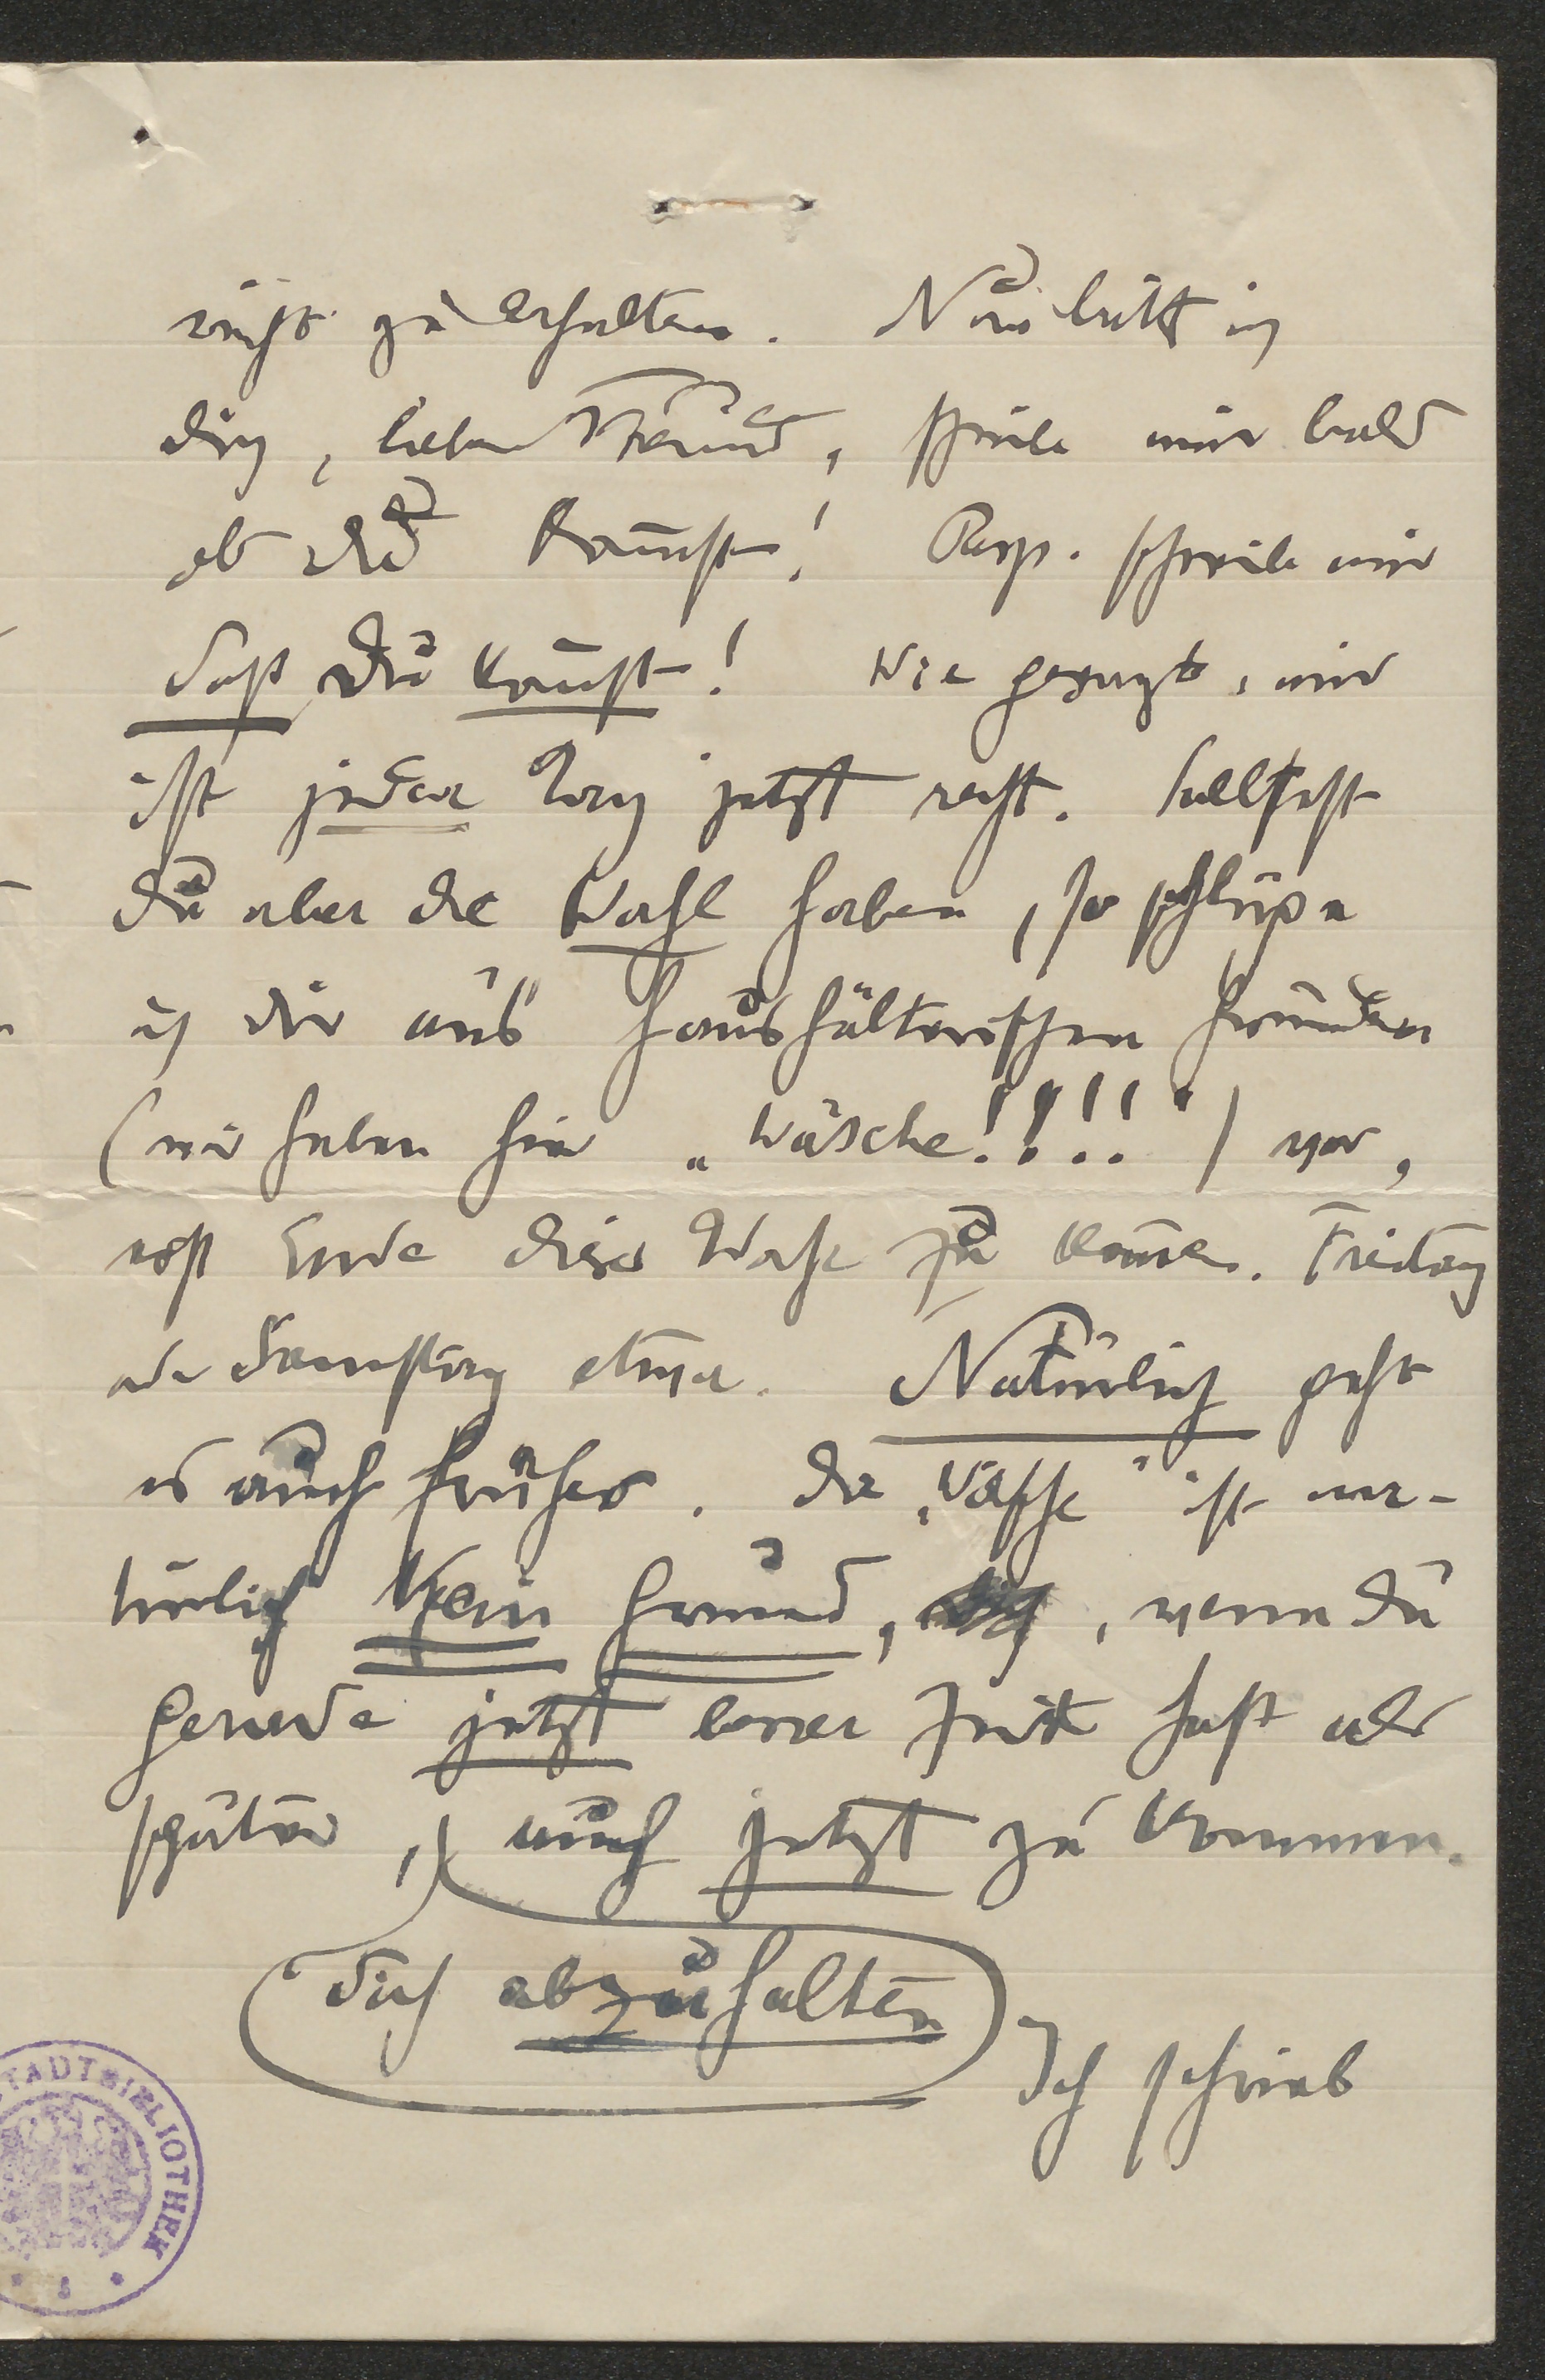 nicht zu erhalten. Nun bitt ich
dich, lieber Freund, schreibe mir bald
ob du kommst! Resp. schreibe mir
daß Du kommst! Wie gesagt, mir
ist jeder Tag jetzt recht. Solltest
du aber die Wahl haben, so schlüge
ich dir aus haushälterischen Gründen
(wir haben hier „Wäsche!!!!“) vor,
erst Ende dieser Woche zu kommen. Freitag
oder Samstag etwa. Natürlich geht
es auch früher. Die „Wäsche“ ist na-
türlich kein Grund, , wenn du
gerade jetzt besser Zeit hast als
später, auch jetzt zu kommen.
dich abzuhalten
Ich schrieb
STADTBIBLIOTHEK